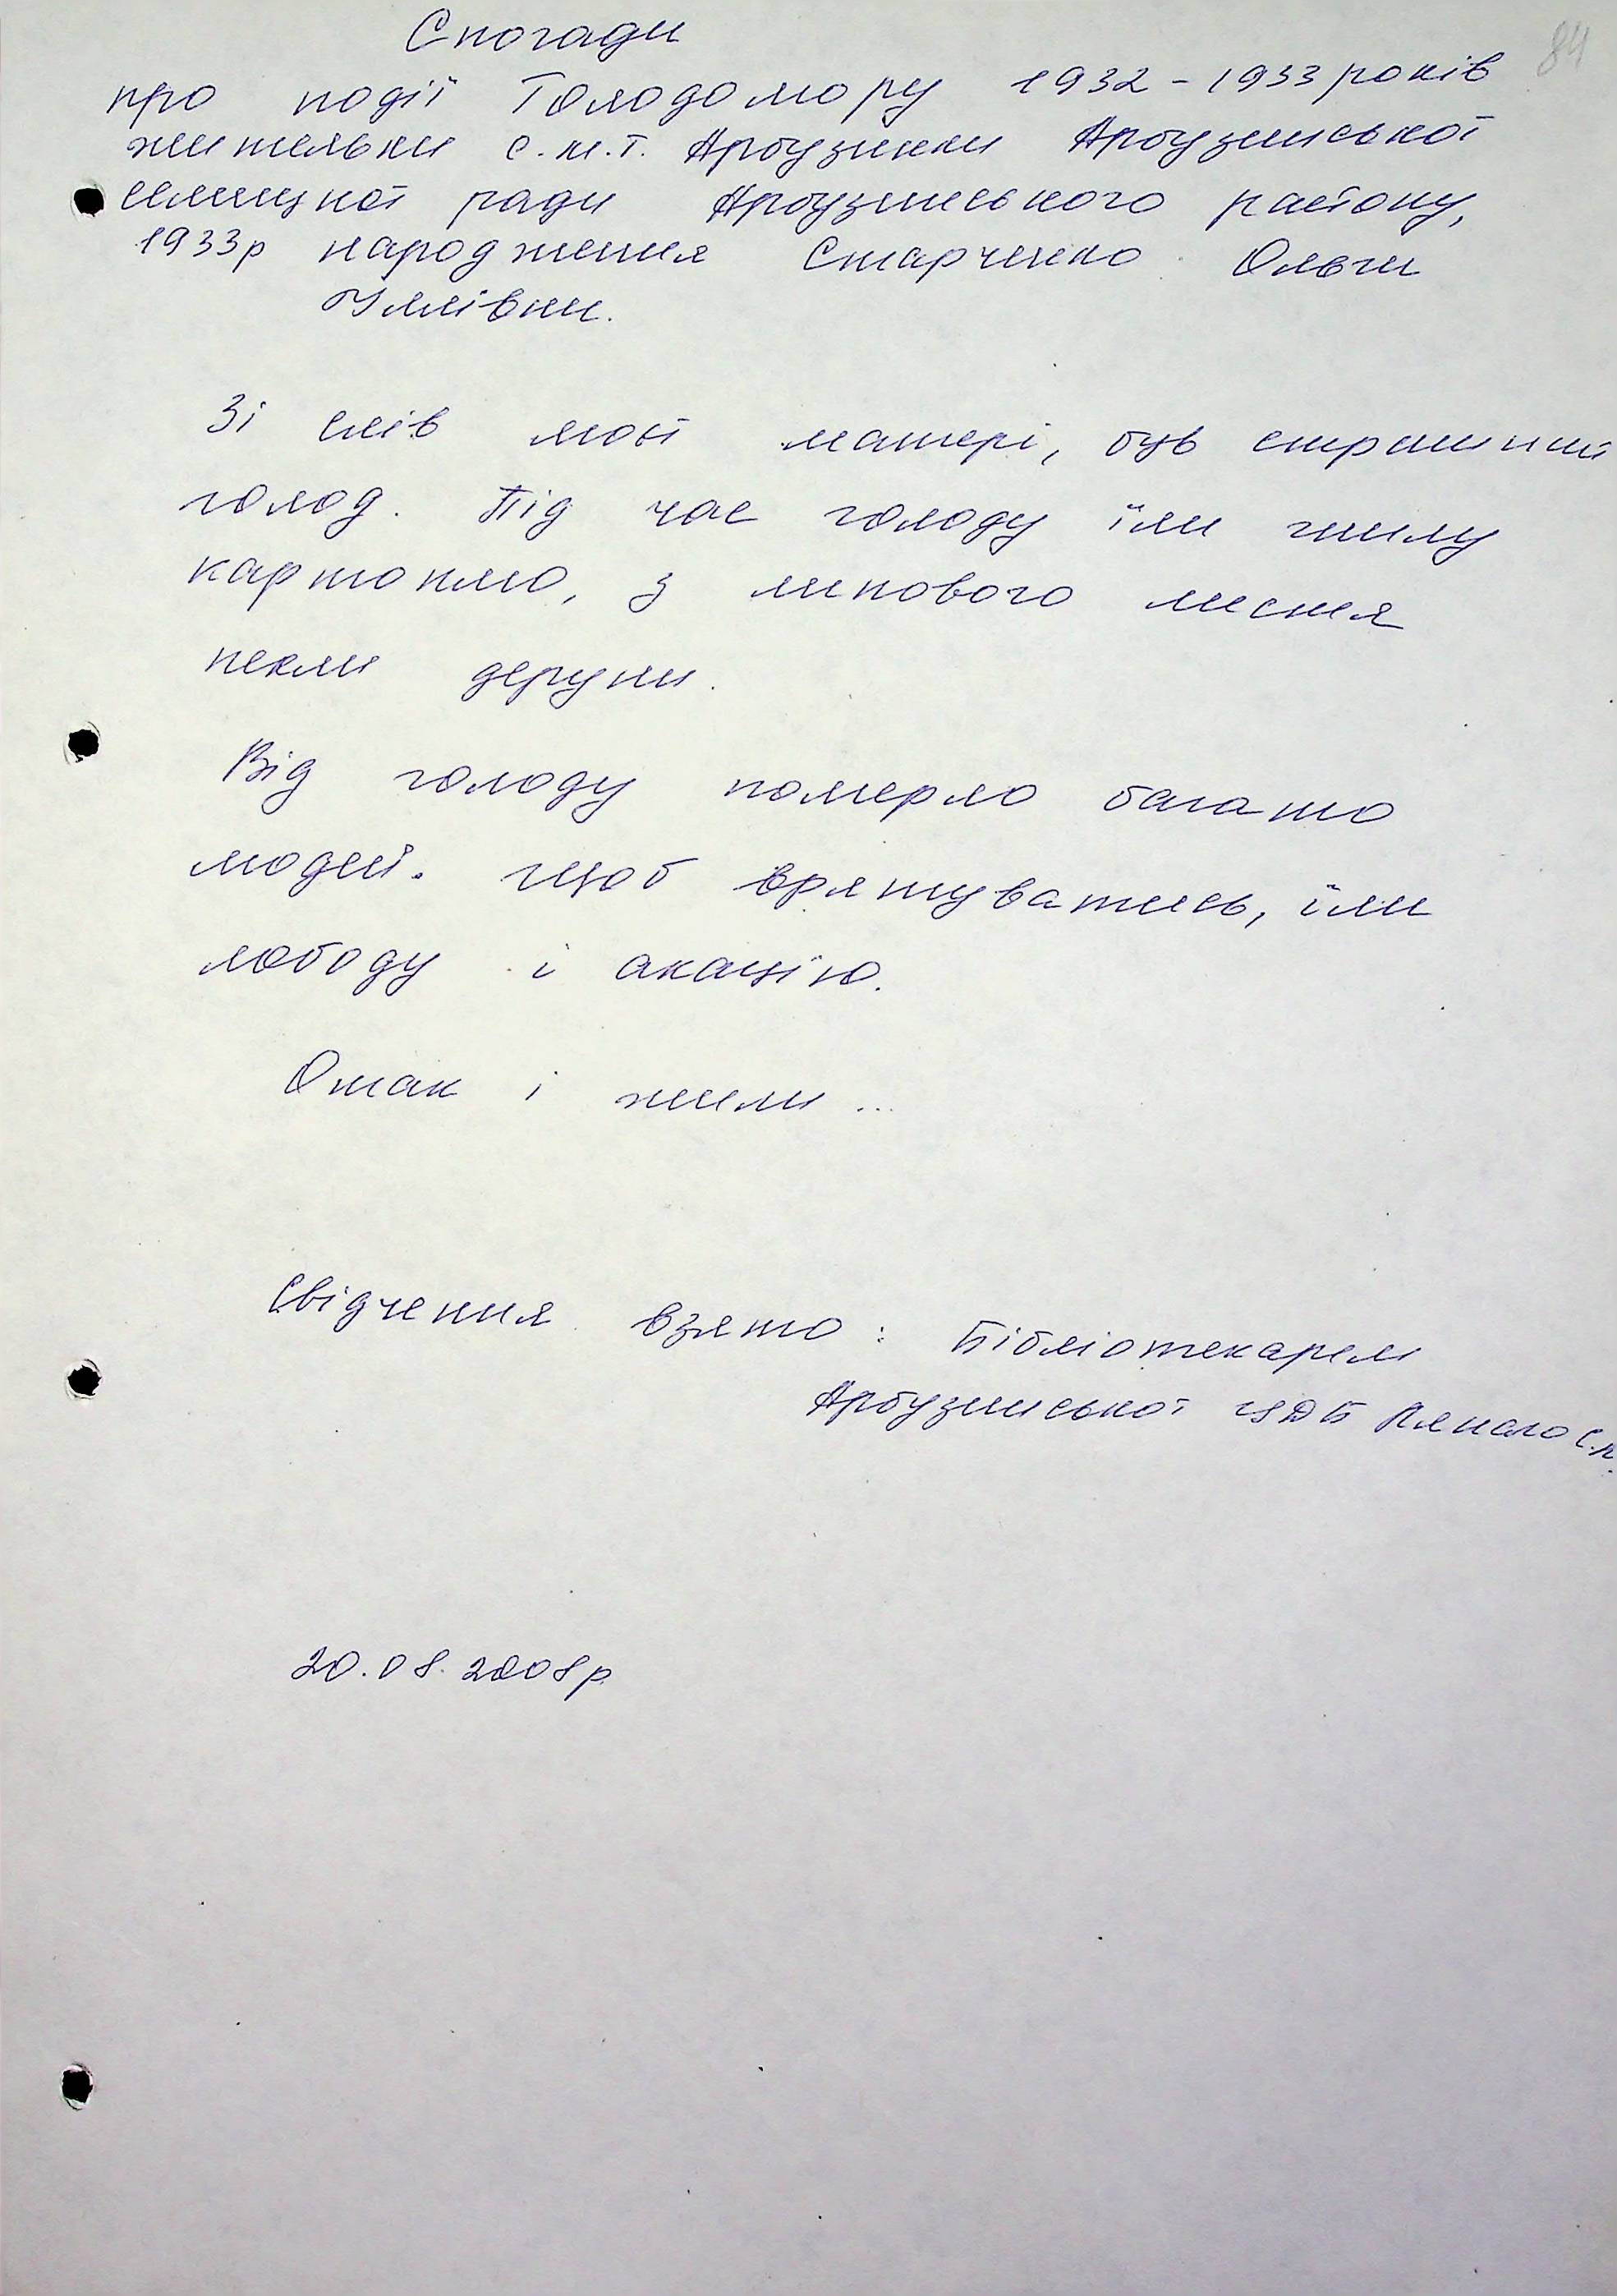 84
Спогади
про події Голодомору 1932 - 1933 років
жительки с.м.т. Арбузинки Арбузинської
селищної ради Арбузинського району,
1933р народження Старченко Ольги
Іллівни.
Зі слів моєї матері, був страшний
голод. Під час голоду їли гнилу
картоплю, з липового листя
пекли деруни.
Від голоду померло багато
людей. Щоб врятуватись, їли
лободу і акацію.
Отак і жили...
Свідчення взято: Бібліотекарем
Арбузинської ЦДБ
20.08.2008р